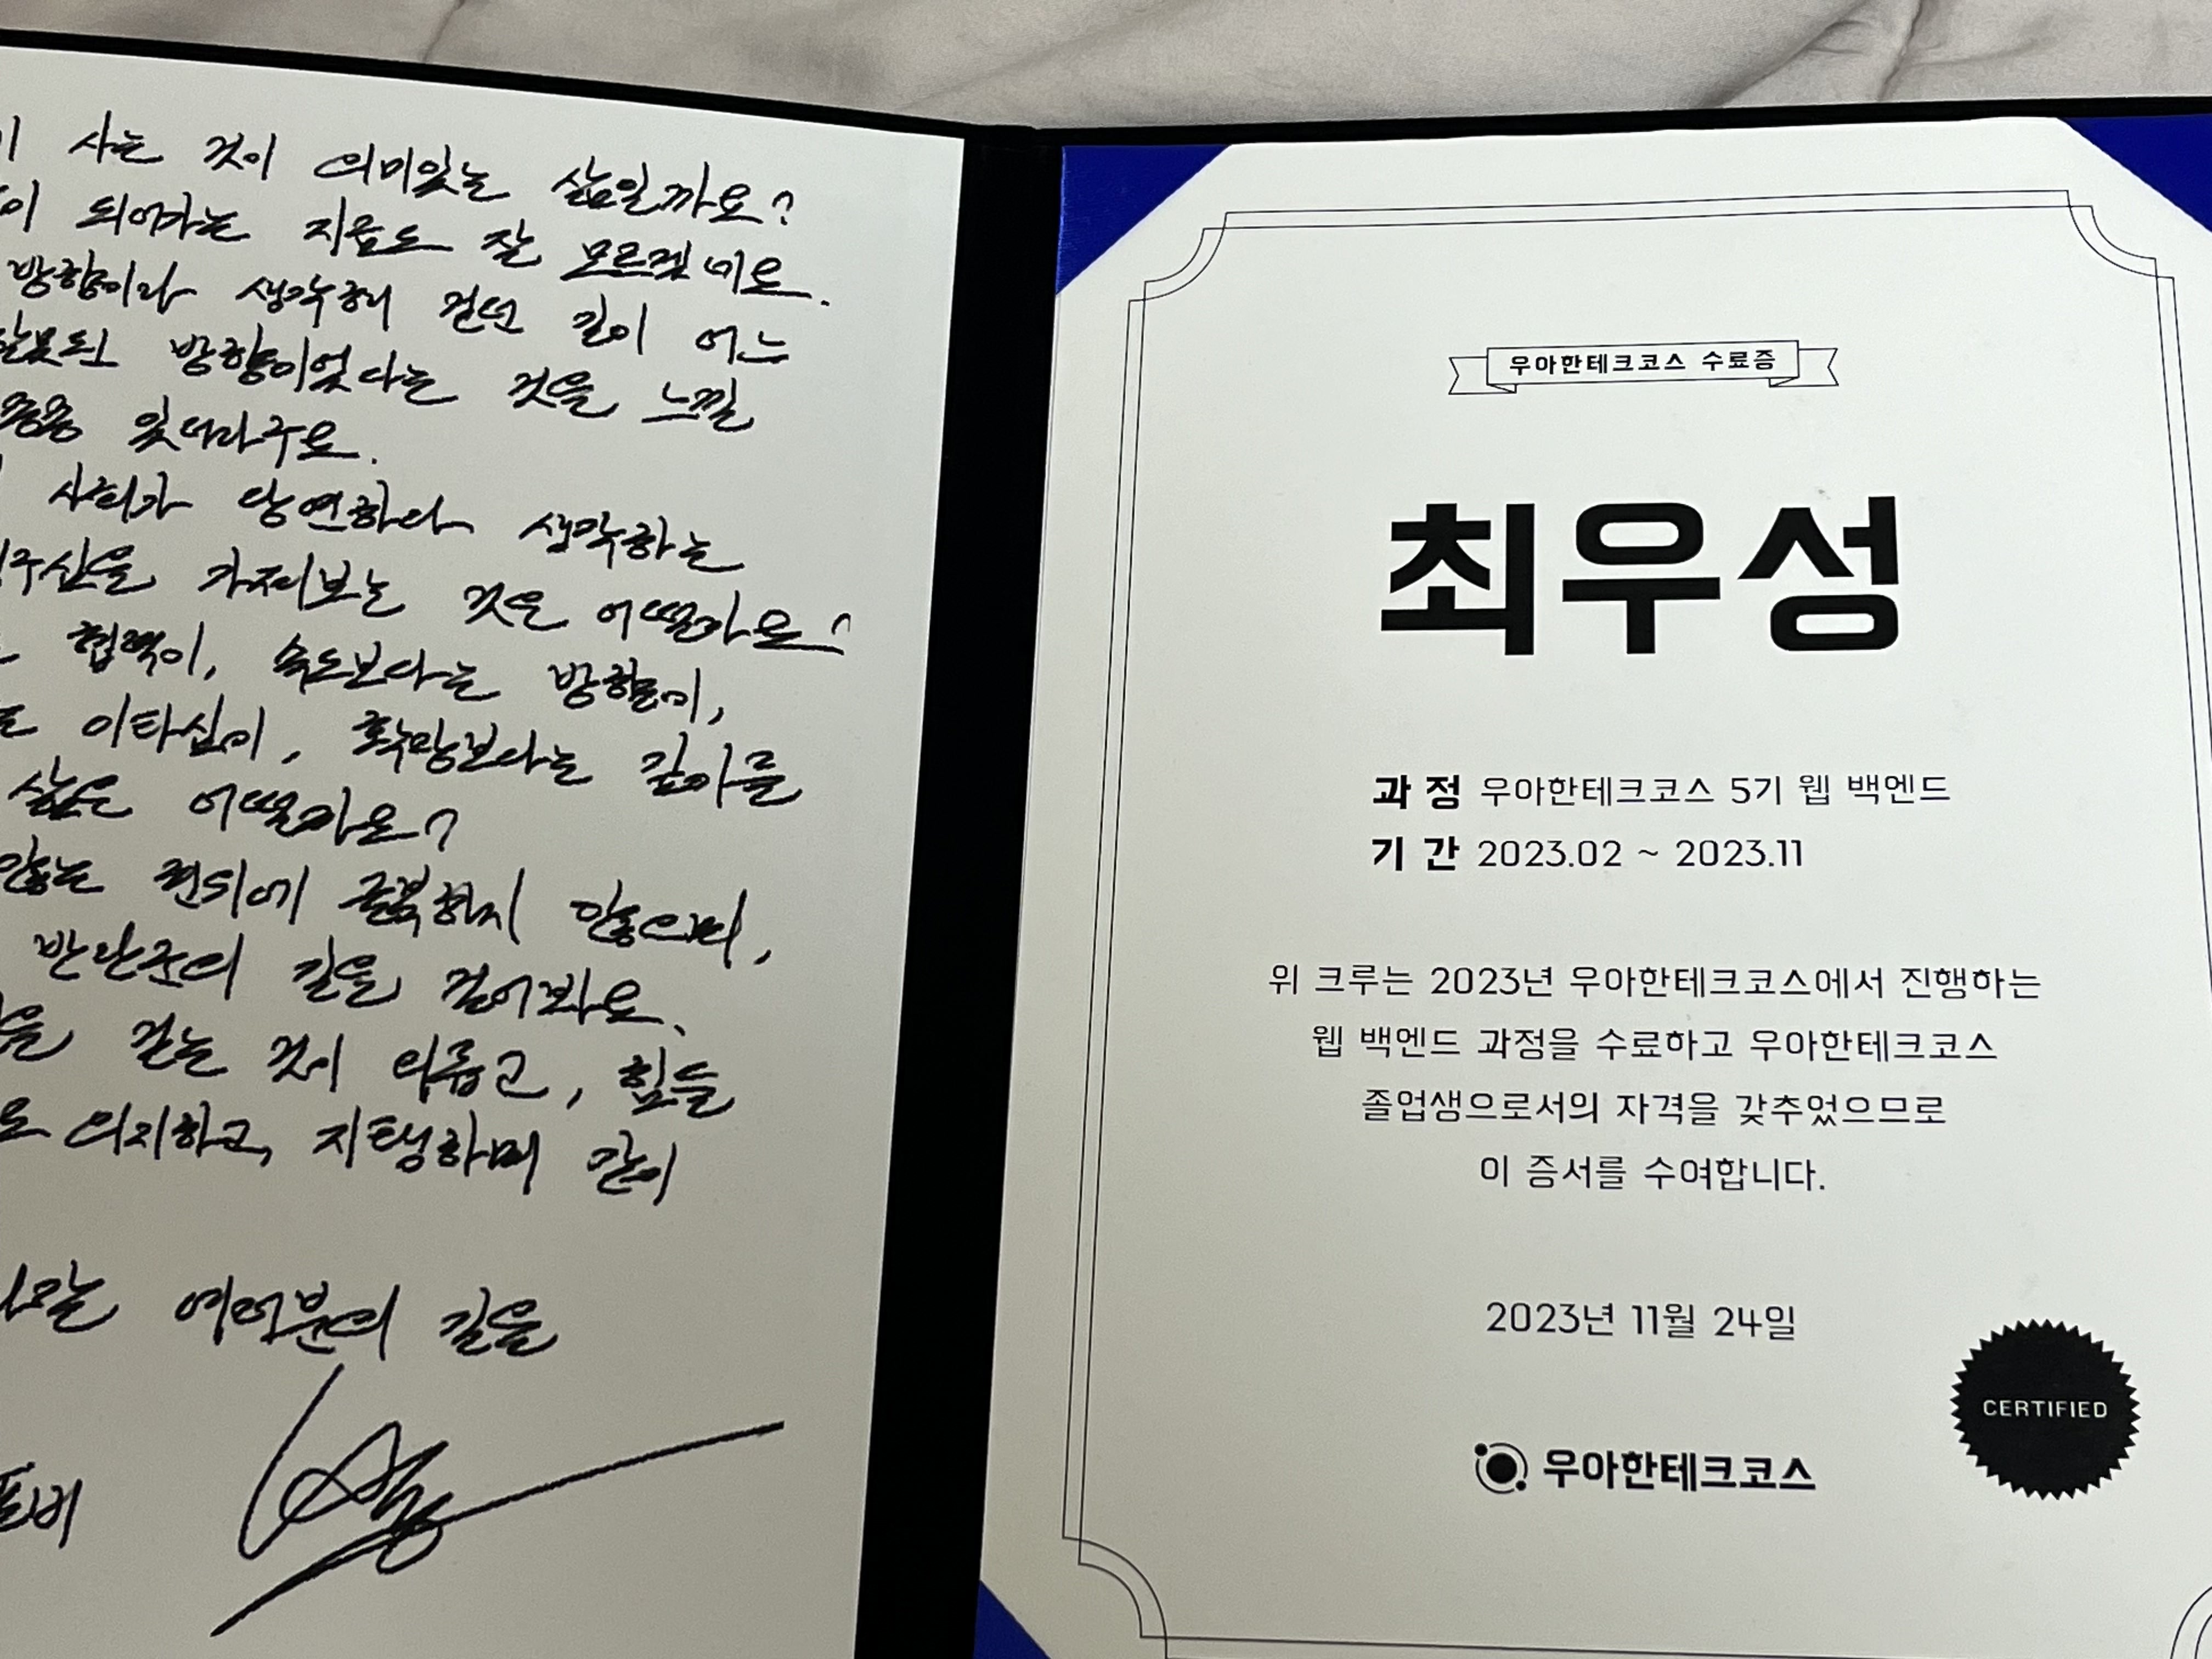 사는 것이 의미있는 삶일까요?
되어가는 지금도 잘 모르겠네요.
방향이라 생각해 걷던 길이 어느
잘못된 방향이었다는 것을 느낄
종종 있더라구요.
사회가 당연하다 생각하는
가져보는 것은 어떨까요?
협력이, 속도보다는 방향이,
이타심이, 확장보다는 깊이를
삶은 어떨까요?
않는 권위에 굴복하지 않으며,
반란군의 길을 걸어봐요.
걷는 것이 외롭고, 힘들
의지하고, 지탱하며 같이
여러분의 길을
포비
우아한테크코스 수료증
최우성
과 정 우아한테크코스 5기 웹 백엔드
기 간 2023.02 ~ 2023.11
위 크루는 2023년 우아한테크코스에서 진행하는
웹 백엔드 과정을 수료하고 우아한테크코스
졸업생으로서의 자격을 갖추었으므로
이 증서를 수여합니다.
2023년 11월 24일
CERTIFIED
우아한테크코스